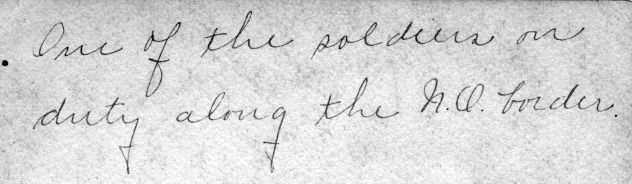 One of the soldiers on
duty along the N.D. border.